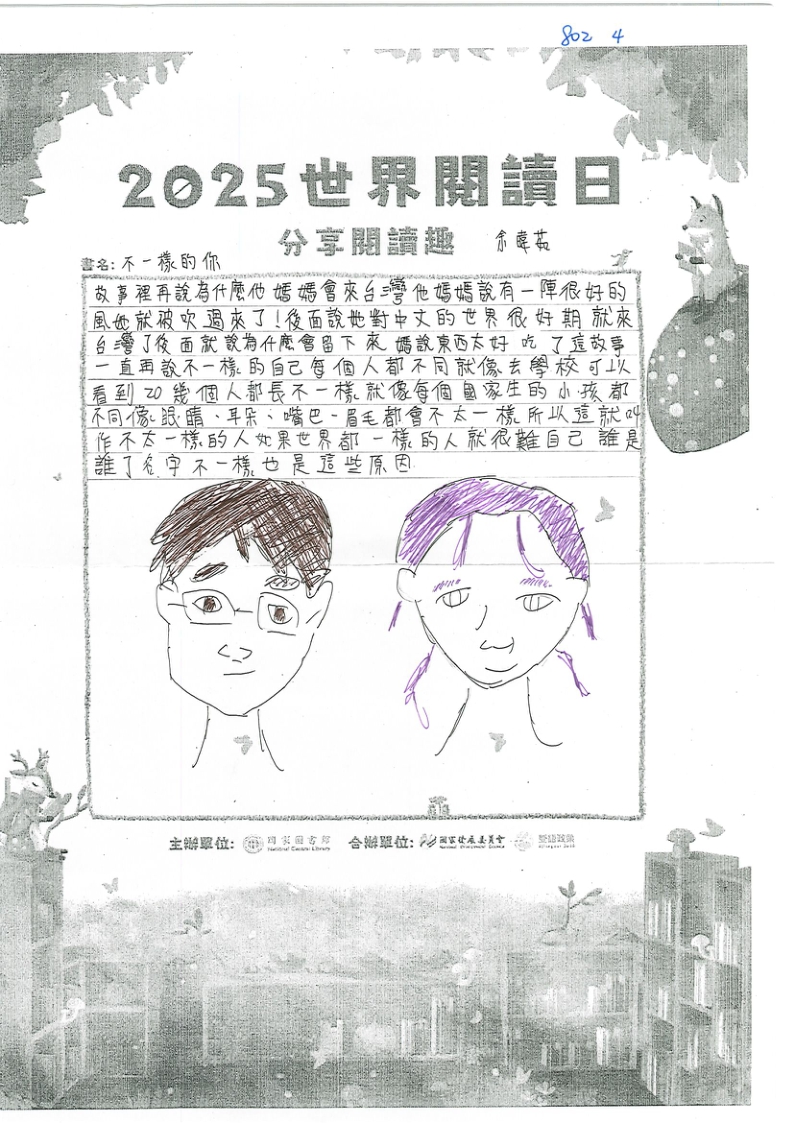 802 4
2025世界閱讀日
分享閱讀趣 余暐茹
書名: 不一樣的你
故事裡再說為什麼他媽媽會來台灣他媽媽說有一陣很好的
風她就被吹過來了!後面說她對中文的世界很好期就來
台灣了後面就說為什麼會留下來媽說東西太好吃了這故事
一直再說不一樣的自己每個人都不同就像去學校可以
看到20幾個人都長不一樣就像每個國家生的小孩都
不同像眼睛、耳朵、嘴巴、眉毛都會不太一樣所以這就叫
作不太一樣的人如果世界都一樣的人就很難自己誰是
誰了名字不一樣也是這些原因
主辦單位: 國家圖書館 National Central Library 合辦單位: 國家發展委員會 National Development Council